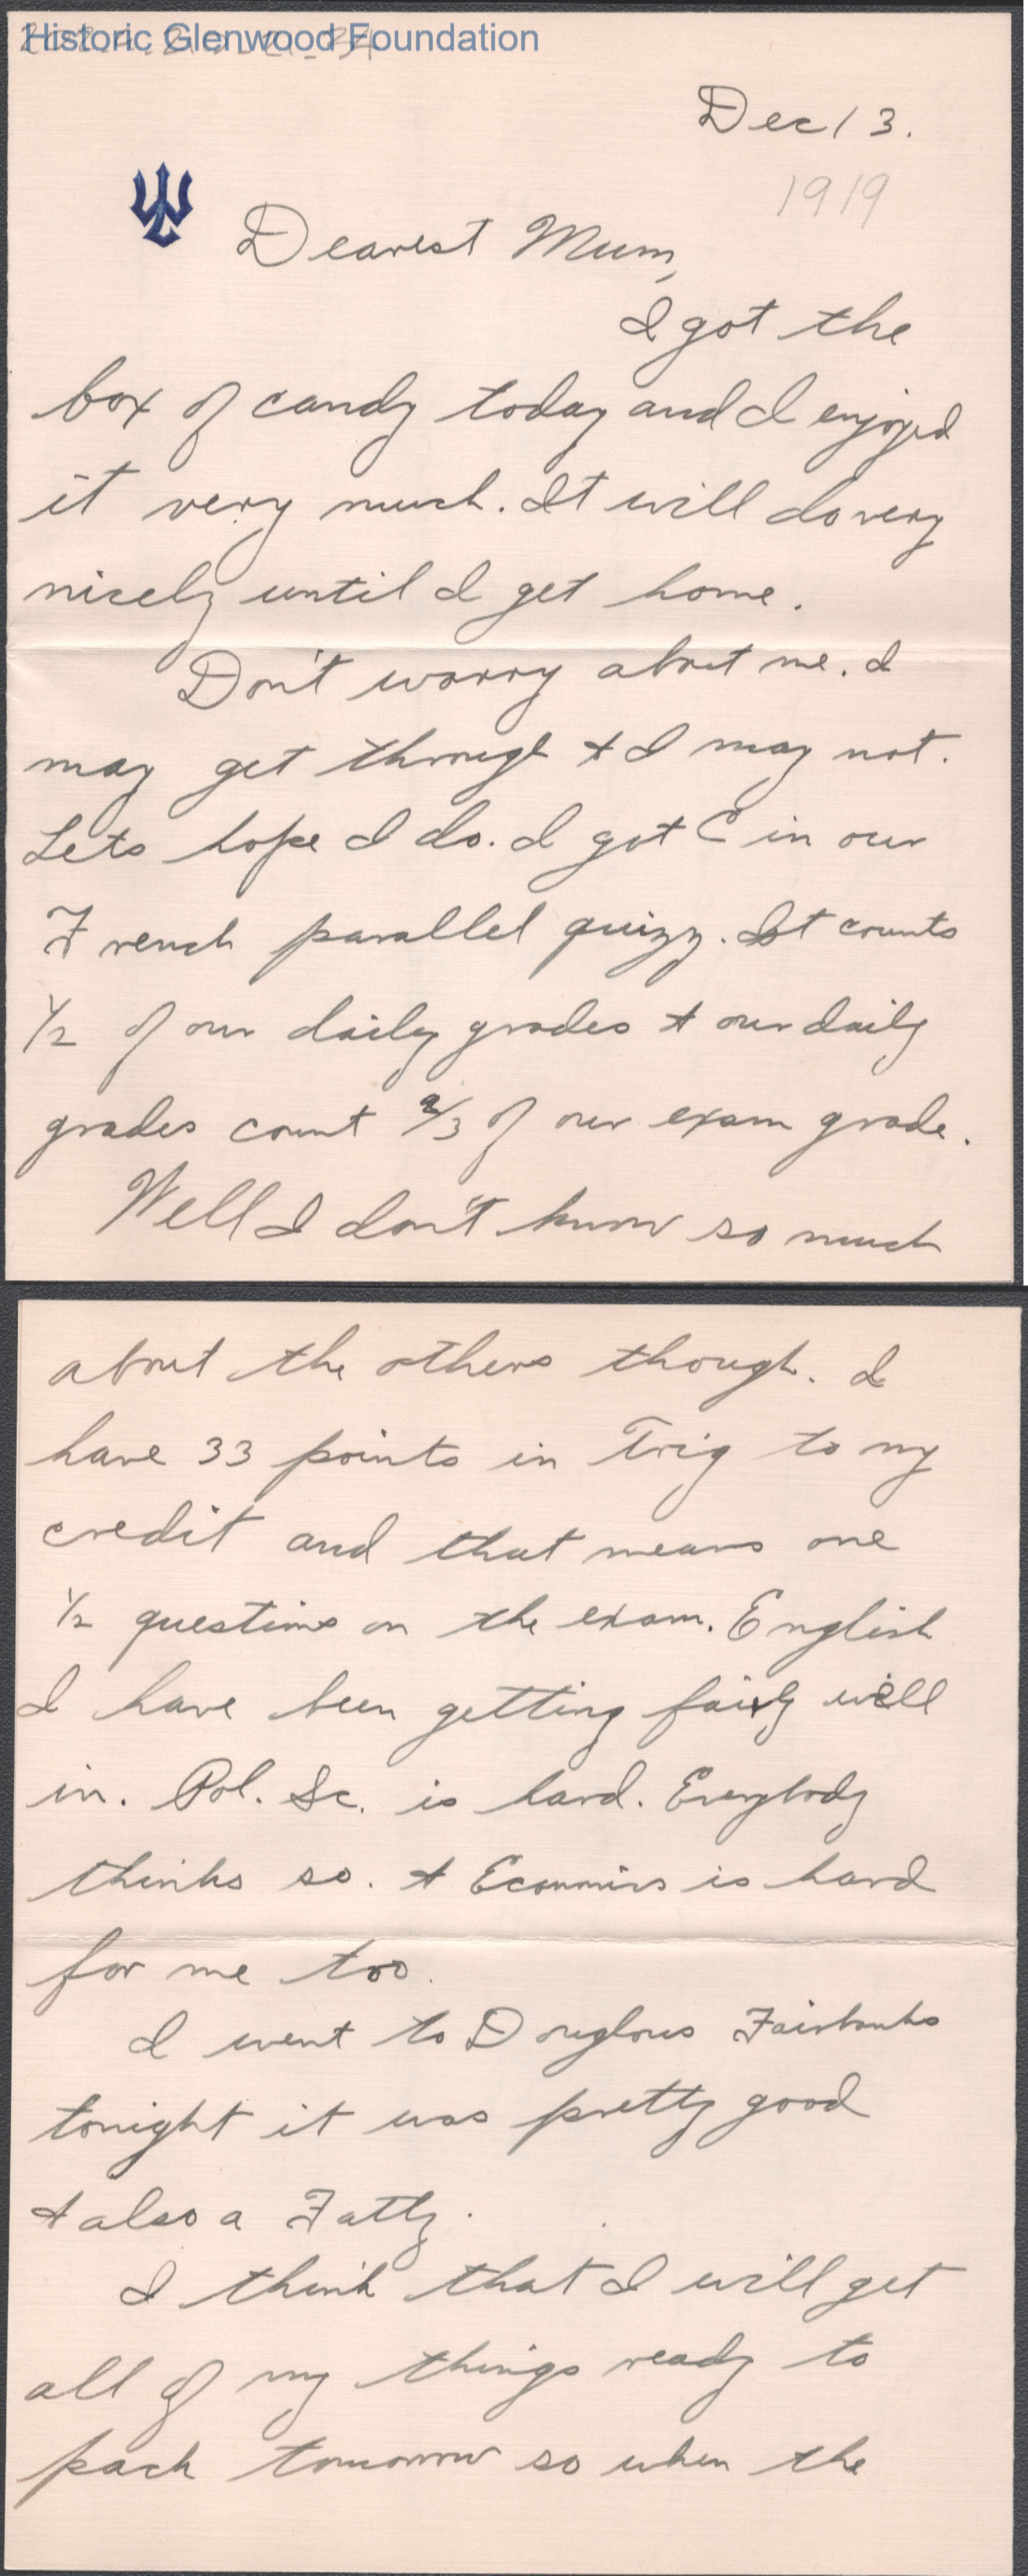 Historic Glenwood Foundation
Dec 13.
1919
Dearest Mum,
I got the
box of candy today and I enjoyed
it very much. It will do very
nicely until I get home.
Don't worry about me. I
may get through & I may not.
Lets hope I do. I got C in our
French parallel quizz. It counts
1/2 of our daily grades & our daily
grades count 2/3 of our exam grade.
Well I don't know so much
about the others though. I
have 33 points in Trig to my
credit and that means one
1/2 questions on the exam. English
I have been getting fairly well
in. Pol. Sc. is hard. Everybody
thinks so. & Economics is hard
for me too.
I went to Douglous Fairbanks
tonight it was pretty good
& also a Fatty.
I think that I will get
all of my things ready to
pack tomorrow so when the